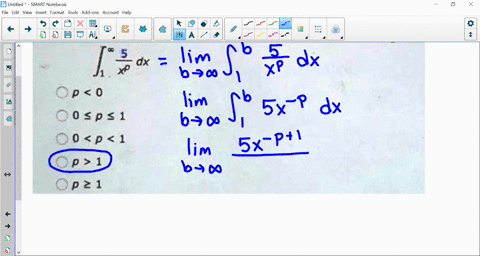 Untitled * - SMART Notebook
File Edit View Insert Format Tools Add-ons Account Help
∫₁^∞ 5/x^p dx = lim b→∞ ∫₁^b 5/x^p dx
p < 0
lim b→∞ ∫₁^b 5x^-p dx
0 ≤ p ≤ 1
0 < p < 1
lim b→∞ 5x^-p+1
p > 1
p ≥ 1